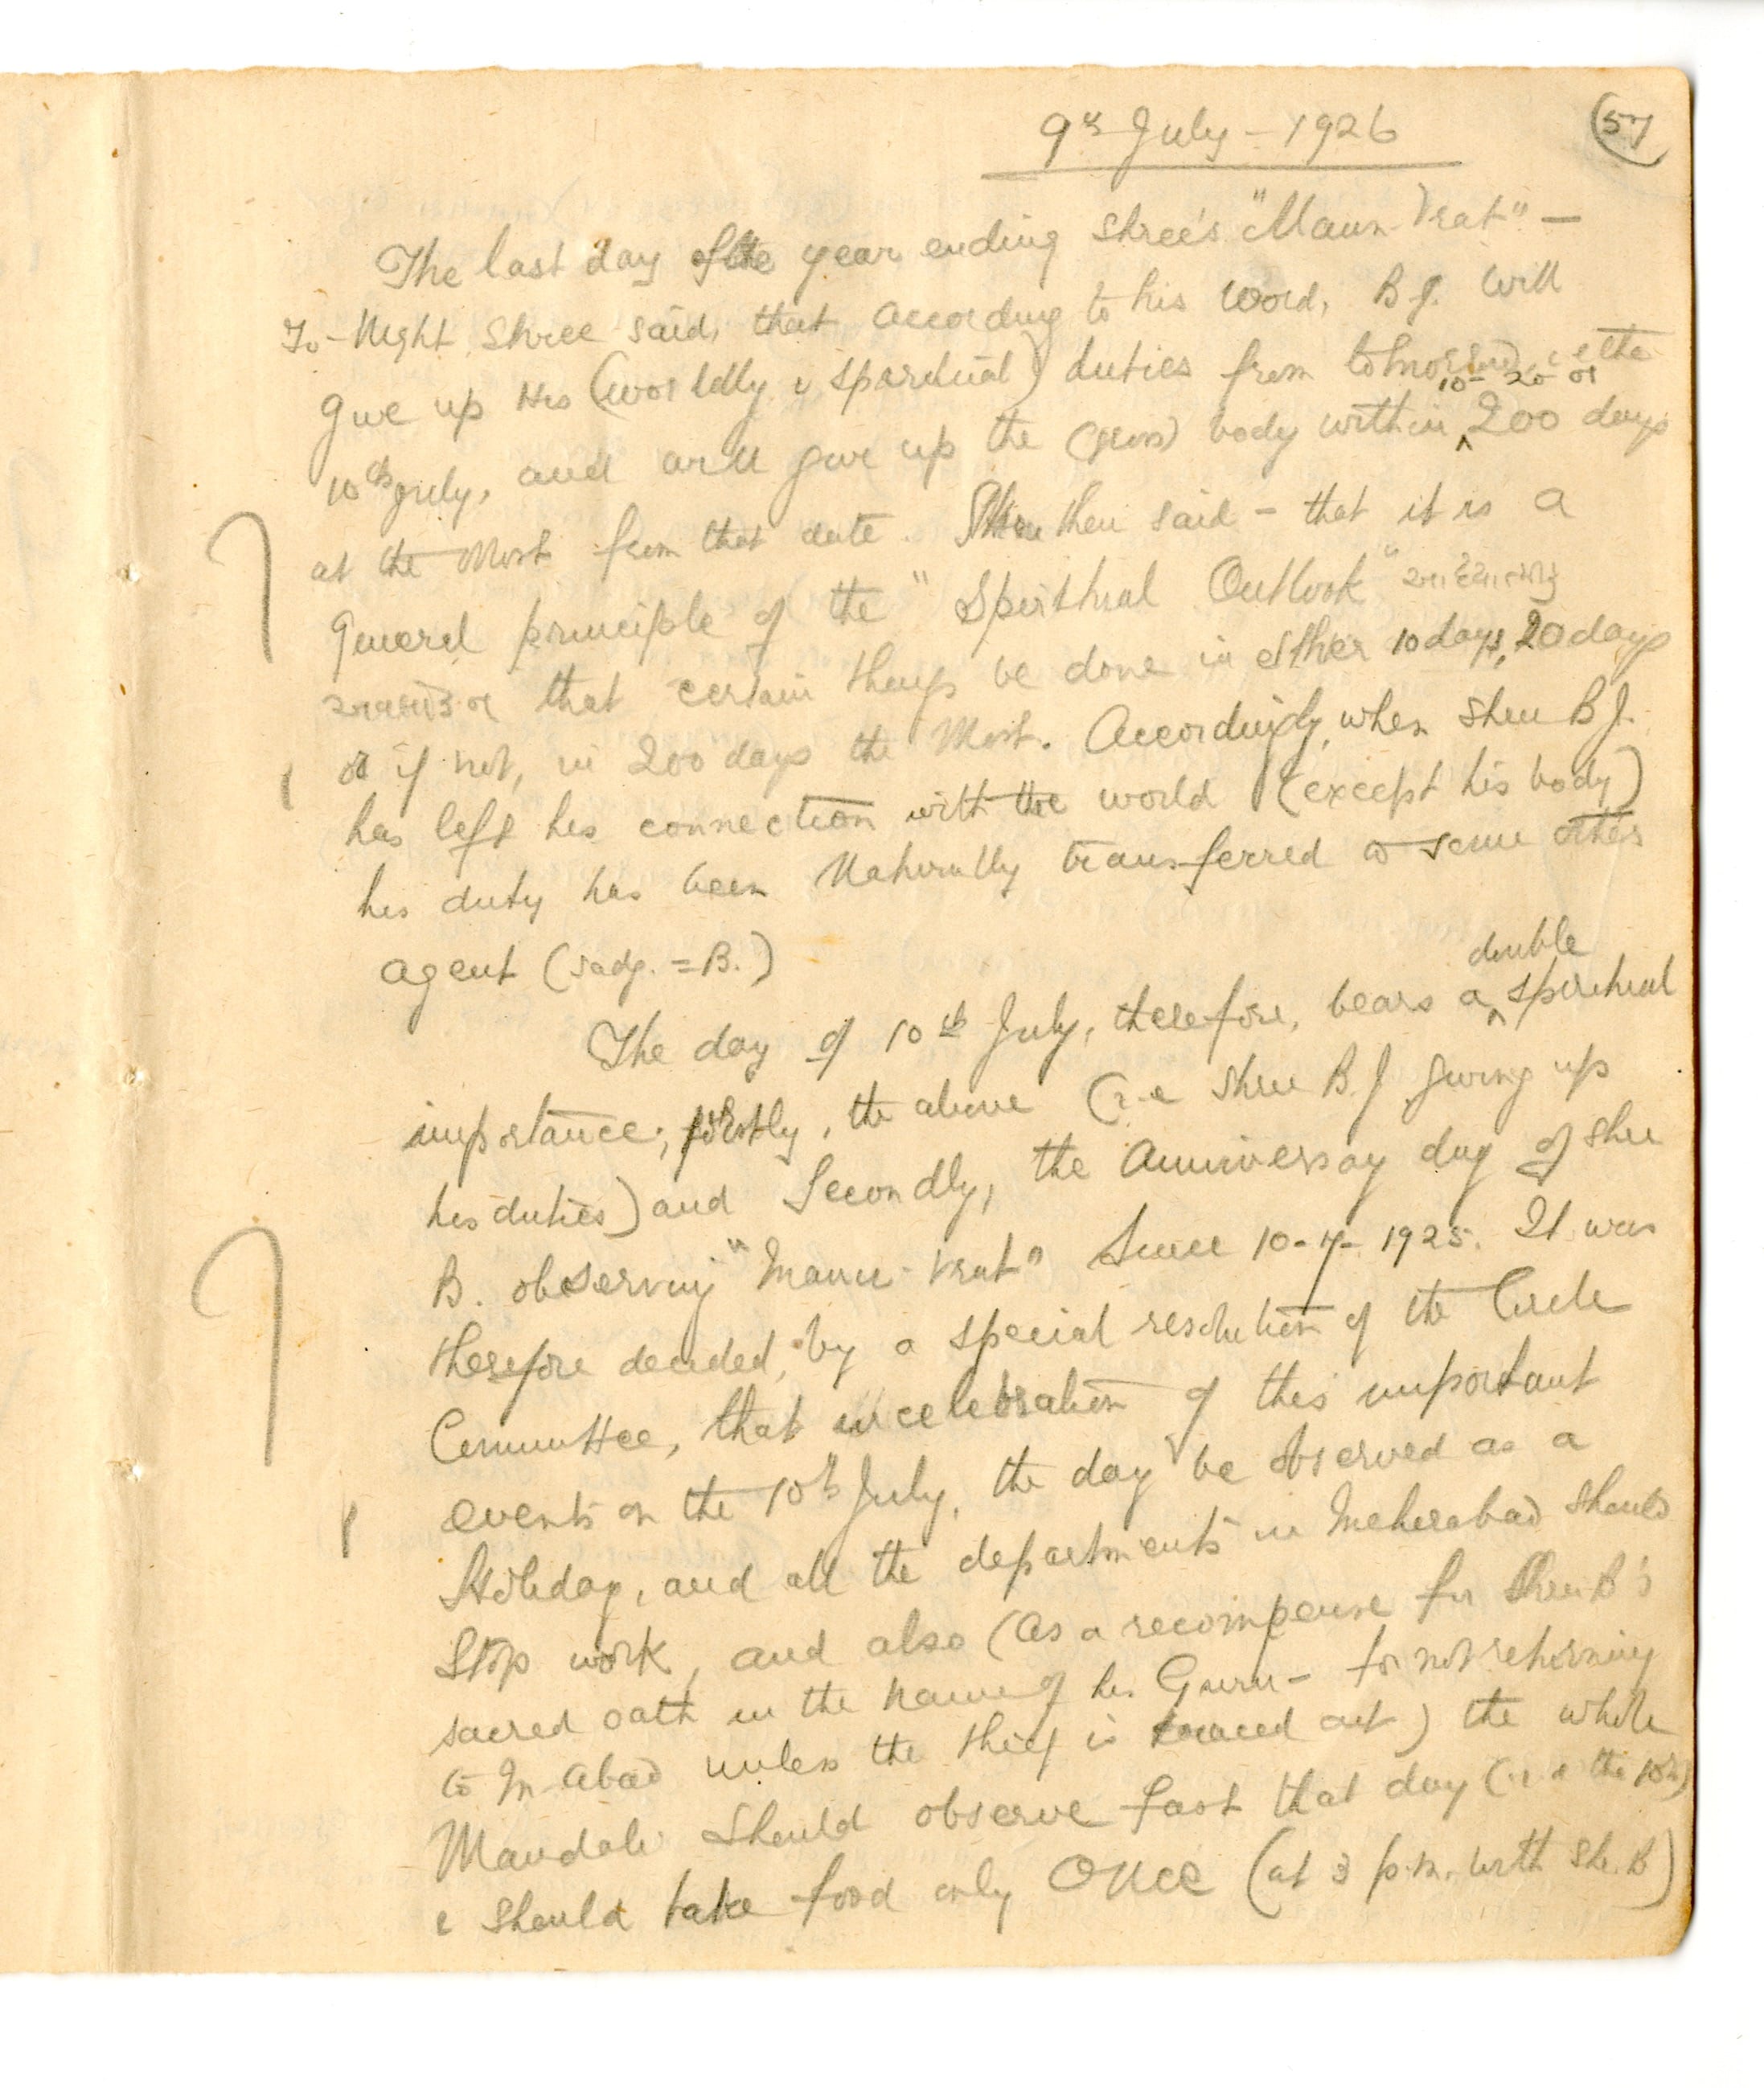 9th July - 1926
57
The last day of the year ending Shree's "Maun Vrat" —
To-Night Shree said, that according to his word, B J. will
give up His (worldly & spiritual) duties from tomorrow, i e the
10th July, and will give up the (gross) body within 10- 20 or 200 days
at the Most from that date. Shree then said - that it is a
General principle of the "Spiritual Outlook"
that certain things be done in either 10 days, 20 days
or if not, in 200 days the Most. Accordingly, when Shree B J.
has left his connection with the world (except his body)
his duty has been Naturally transferred to some other
agent (sadg. = B.)
The day of 10th July, therefore, bears a double spiritual
importance; firstly, the above (i.e Shree B. J giving up
his duties) and Secondly, the Anniversay day of Shree
B. observing "Maun-Vrat" Since 10-7-1925. It was
therefore decided, by a special resolution of the Circle
Committee, that in celebration of this important
events on the 10th July, the day be observed as a
Holiday, and all the departments in Meherabad should
Stop work, and also (as a recompense for Shree B's
sacred oath in the name of his Guru - for not returning
to M-abad unless the thief is traced out) the whole
Mandali should observe fast that day (i.e the 10th)
& should take food only Once (at 3 p.m. with Sh. B)